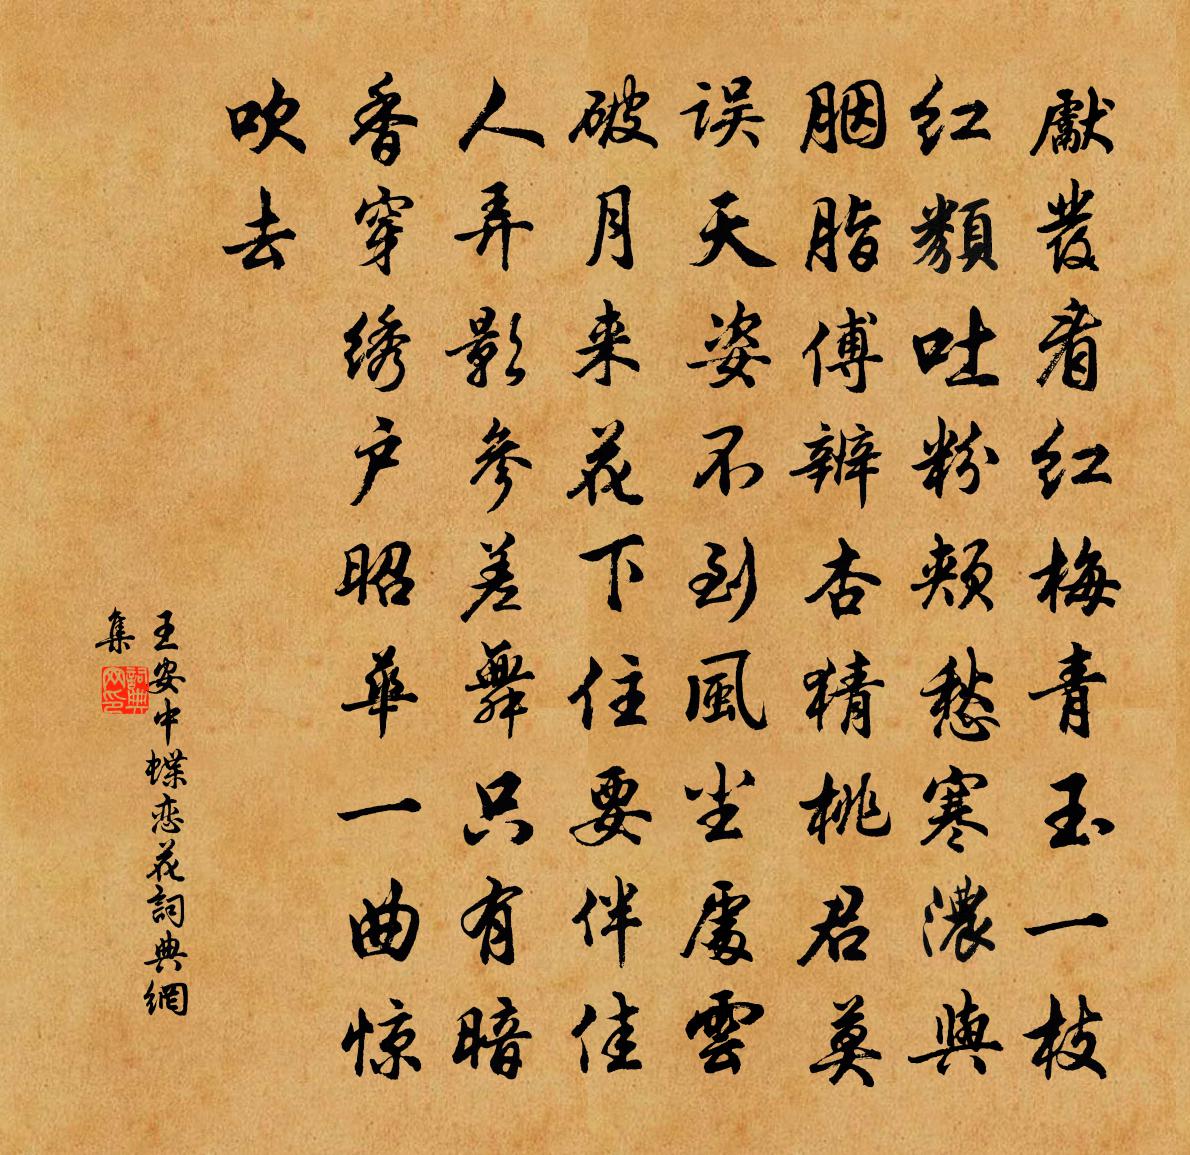 獻發看红梅青玉一枝
红類吐粉颊愁寒濃與
胭脂傅辨杏猜桃君莫
误天姿不到風尘處雲
破月来花下住要伴佳
人弄影参差舞只有暗
香穿绣户昭華一曲惊
吹去
王安中蝶恋花詞典網
集
詞典网印